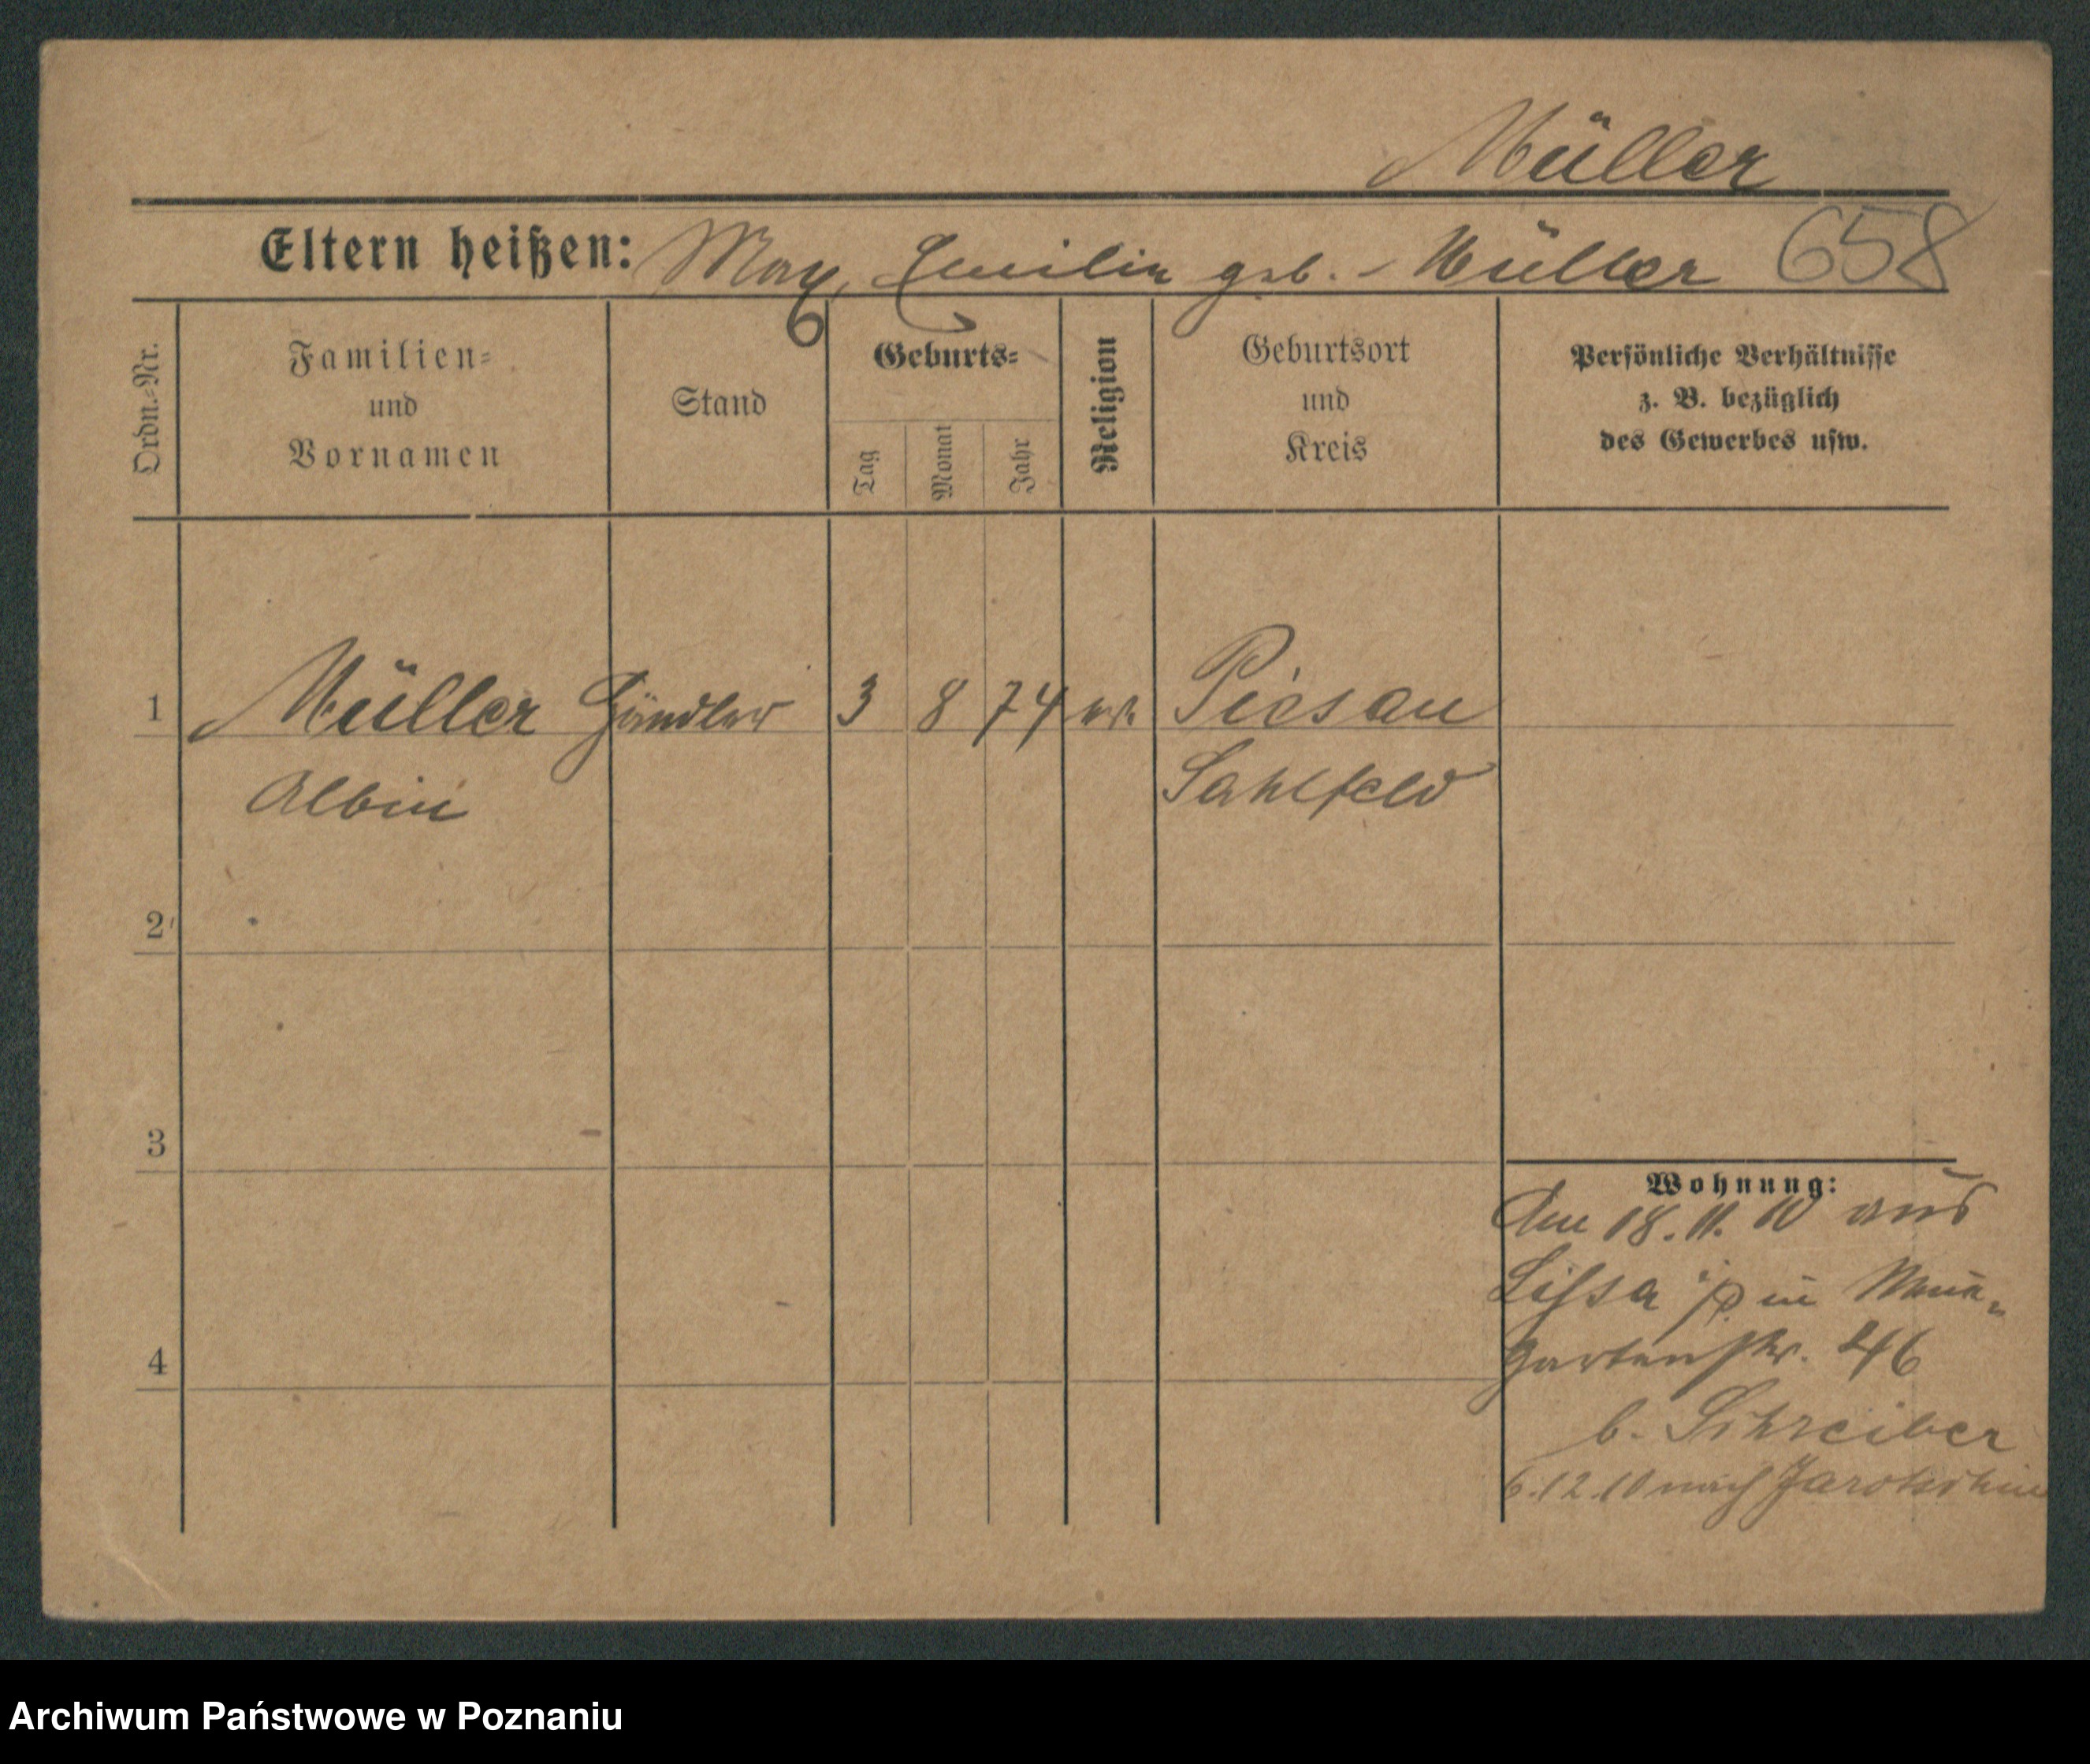 Müller
Eltern heißen: Max, Emilie geb. Müller 658
Ordn.-Nr.
Familien-
und
Vornamen
Stand
Geburts-
Tag
Monat
Jahr
Religion
Geburtsort
und
Kreis
Persönliche Verhältnisse
z. B. bezüglich
des Gewerbes usw.
1 Müller Händler 3 8 74 ev. Piesau
Albin Sahlfeld
2
3
4
Wohnung:
Am 18.11.10 aus
Lissa i/P in
Gartenstr. 46
b. Schreiber
6.12.10 nach Jarotschin
Archiwum Państwowe w Poznaniu